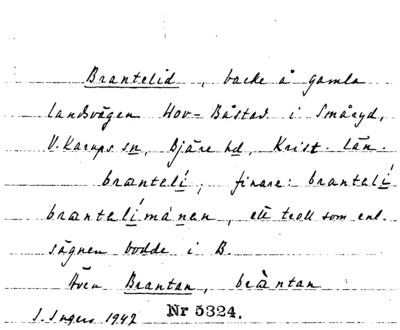 Brantelid, backe å gamla
landsvägen Hov-Båstad i Småryd,
V. Karups sn, Bjäre hd, Krist. län.
bræntalí, finare: brantalí
bræntalímánen, ett troll som enl.
sägnen bodde i B.
Även Brantan, bràntan
I. Ingers 1942 Nr 5324.